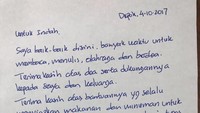 Depok, 4-10-2017
Untuk Indah,
Saya baik-baik disini, banyak waktu untuk
membaca, menulis, olahraga dan berdoa.
Terima kasih atas doa serta dukungannya
kepada saya dan keluarga.
Terima kasih atas bantuannya yg selalu
makanan dan minuman untuk